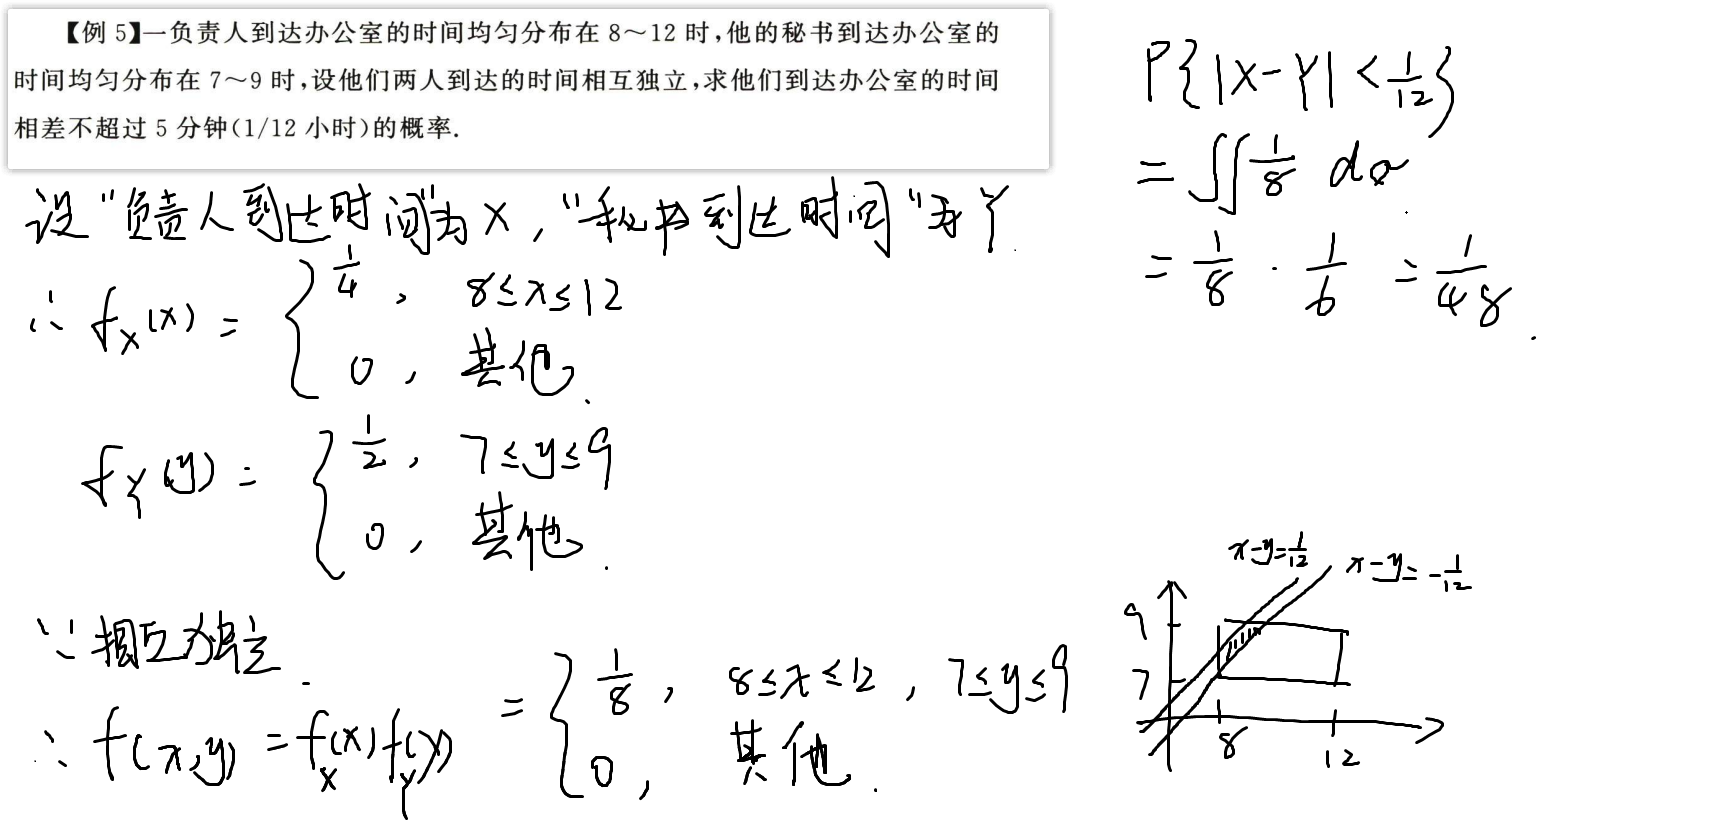 【例 5】一负责人到达办公室的时间均匀分布在 8～12 时,他的秘书到达办公室的
时间均匀分布在 7～9 时,设他们两人到达的时间相互独立,求他们到达办公室的时间
相差不超过 5 分钟(1/12 小时)的概率.
设"负责人到达时间"为 X , "秘书到达时间"为 Y .
∴ f_X(x) = { 1/4 , 8≤x≤12
0 , 其他 .
f_Y(y) = { 1/2 , 7≤y≤9
0 , 其他 .
∵ 相互独立 .
∴ f(x,y) = f_X(x) f_Y(y) = { 1/8 , 8≤x≤12 , 7≤y≤9
0 , 其他 .
P{|X-Y|<1/12}
= ∬ 1/8 dσ
= 1/8 · 1/6 = 1/48 .
x-y=1/12
x-y=-1/12
9
7
8
12